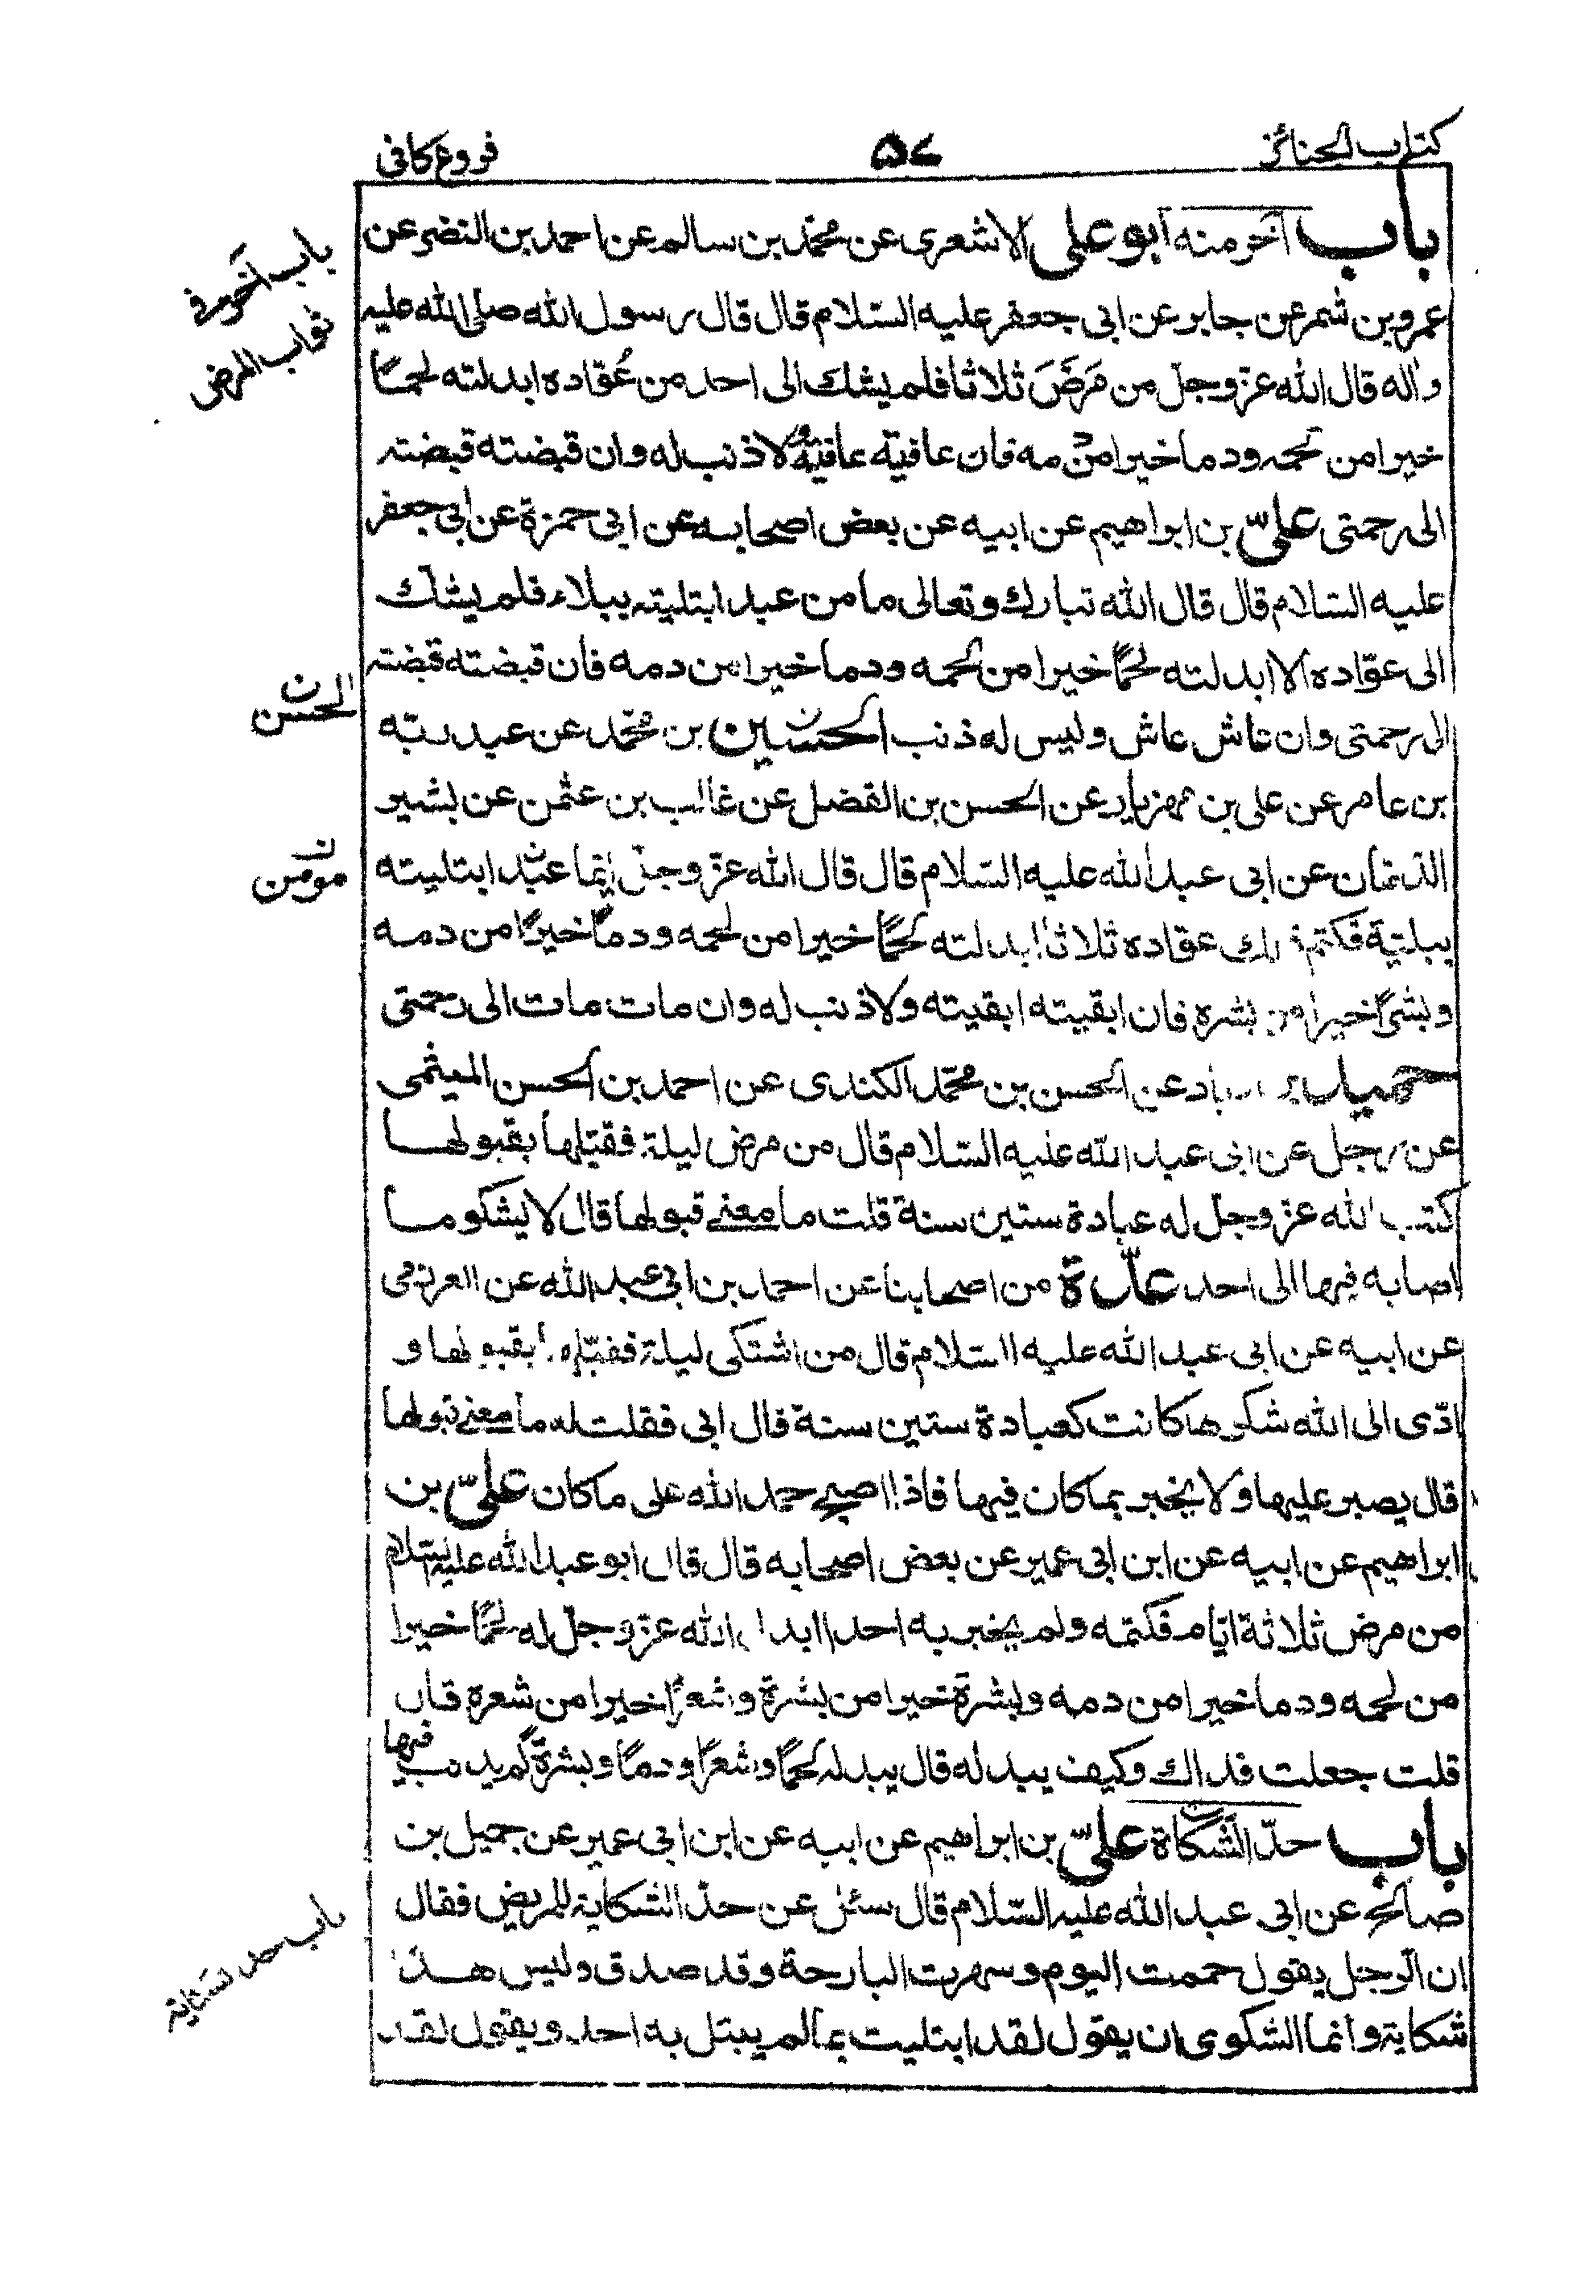 كتاب الجنائز
۵۷
فروع كافى
باب آخر منه ابو على الاشعرى عن محمّد بن سالم عن احمد بن النضر عن
عمرو بن شمر عن جابر عن ابى جعفر عليه السّلام قال قال رسول الله صلى الله عليه
واٰله قال الله عزّ وجلّ من مَرَضَ ثلاثا فلم يشك الى احد من عُوّاده ابدلته لحمًا
خيرا من لحمه ودما خيرا من دمه فان عافيته عافيته ولا ذنب له وان قبضته قبضته
الى رحمتى علىّ بن ابراهيم عن ابيه عن بعض اصحابه عن ابى حمزة عن ابى جعفر
عليه السّلام قال قال الله تبارك وتعالى ما من عبد ابتليته ببلاء فلم يشك
الى عوّاده الا ابدلته لحمًا خيرا من لحمه ودما خيرا من دمه فان قبضته قبضته
الى رحمتى وان عاش عاش وليس له ذنب الحسين بن محمّد عن عبد ربّه
بن عامر عن على بن مهزيار عن الحسن بن الفضل عن غالب بن عثمن عن بشير
الدّهّان عن ابى عبد الله عليه السّلام قال قال الله عزّ وجلّ ايّما عبد ابتليته
ببليّة فكتم ذلك عوّاده ثلاثا ابدلته لحمًا خيرا من لحمه ودمًا خيرًا من دمه
وبشرًا خيرا من بشره فان ابقيته ابقيته ولا ذنب له وان مات مات الى رحمتى
حميد بن زياد عن الحسن بن محمّد الكندى عن احمد بن الحسن الميثمى
عن رجل عن ابى عبد الله عليه السّلام قال من مرض ليلة فقبلها بقبولها
كتب الله عزّ وجلّ له عبادة ستين سنة قلت ما معنى قبولها قال لا يشكو ما
اصابه فيها الى احد عدّة من اصحابنا عن احمد بن ابى عبد الله عن العرزمى
عن ابيه عن ابى عبد الله عليه السلام قال من اشتكى ليلة فقبلها بقبولها و
ادّى الى الله شكرها كانت كعبادة ستين سنة قال ابى فقلت له ما معنى قبولها
قال يصبر عليها ولا يخبر بما كان فيها فاذا اصبح حمد الله على ما كان علىّ بن
ابراهيم عن ابيه عن ابن ابى عمير عن بعض اصحابه قال قال ابو عبد الله عليه السّلام
من مرض ثلاثة ايّام فكتمه ولم يخبر به احدا ابدل الله عزّ وجلّ له لحمًا خيرا
من لحمه ودما خيرا من دمه وبشرة خيرا من بشرة وشعرًا خيرا من شعره قال
قلت جعلت فداك وكيف يبدله قال يبدله لحمًا وشعرًا ودمًا وبشرةً لم يذنب فيها
باب حدّ الشكاة علىّ بن ابراهيم عن ابيه عن ابن ابى عمير عن جميل بن
صالح عن ابى عبد الله عليه السّلام قال سئل عن حدّ الشكاية للمريض فقال
ان الرّجل يقول حممت اليوم وسهرت البارحة وقد صدق وليس هذا
شكاية وانما الشكوى ان يقول لقد ابتليت بما لم يبتل به احد ويقول لقد
باب آخر فى
ثواب المرض
الحسن ن
مومن ن
باب حد شكاية